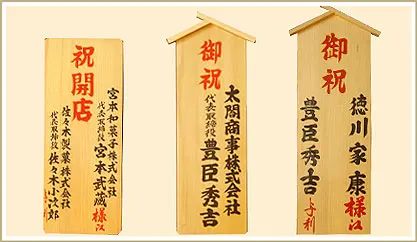 祝
開店
宮本和菓子株式会社
代表取締役 宮本武蔵様江
佐々木製菓株式会社
代表取締役 佐々木小次郎
御祝
太閤商事株式会社
代表取締役 豊臣秀吉
御祝
徳川家康様江
豊臣秀吉